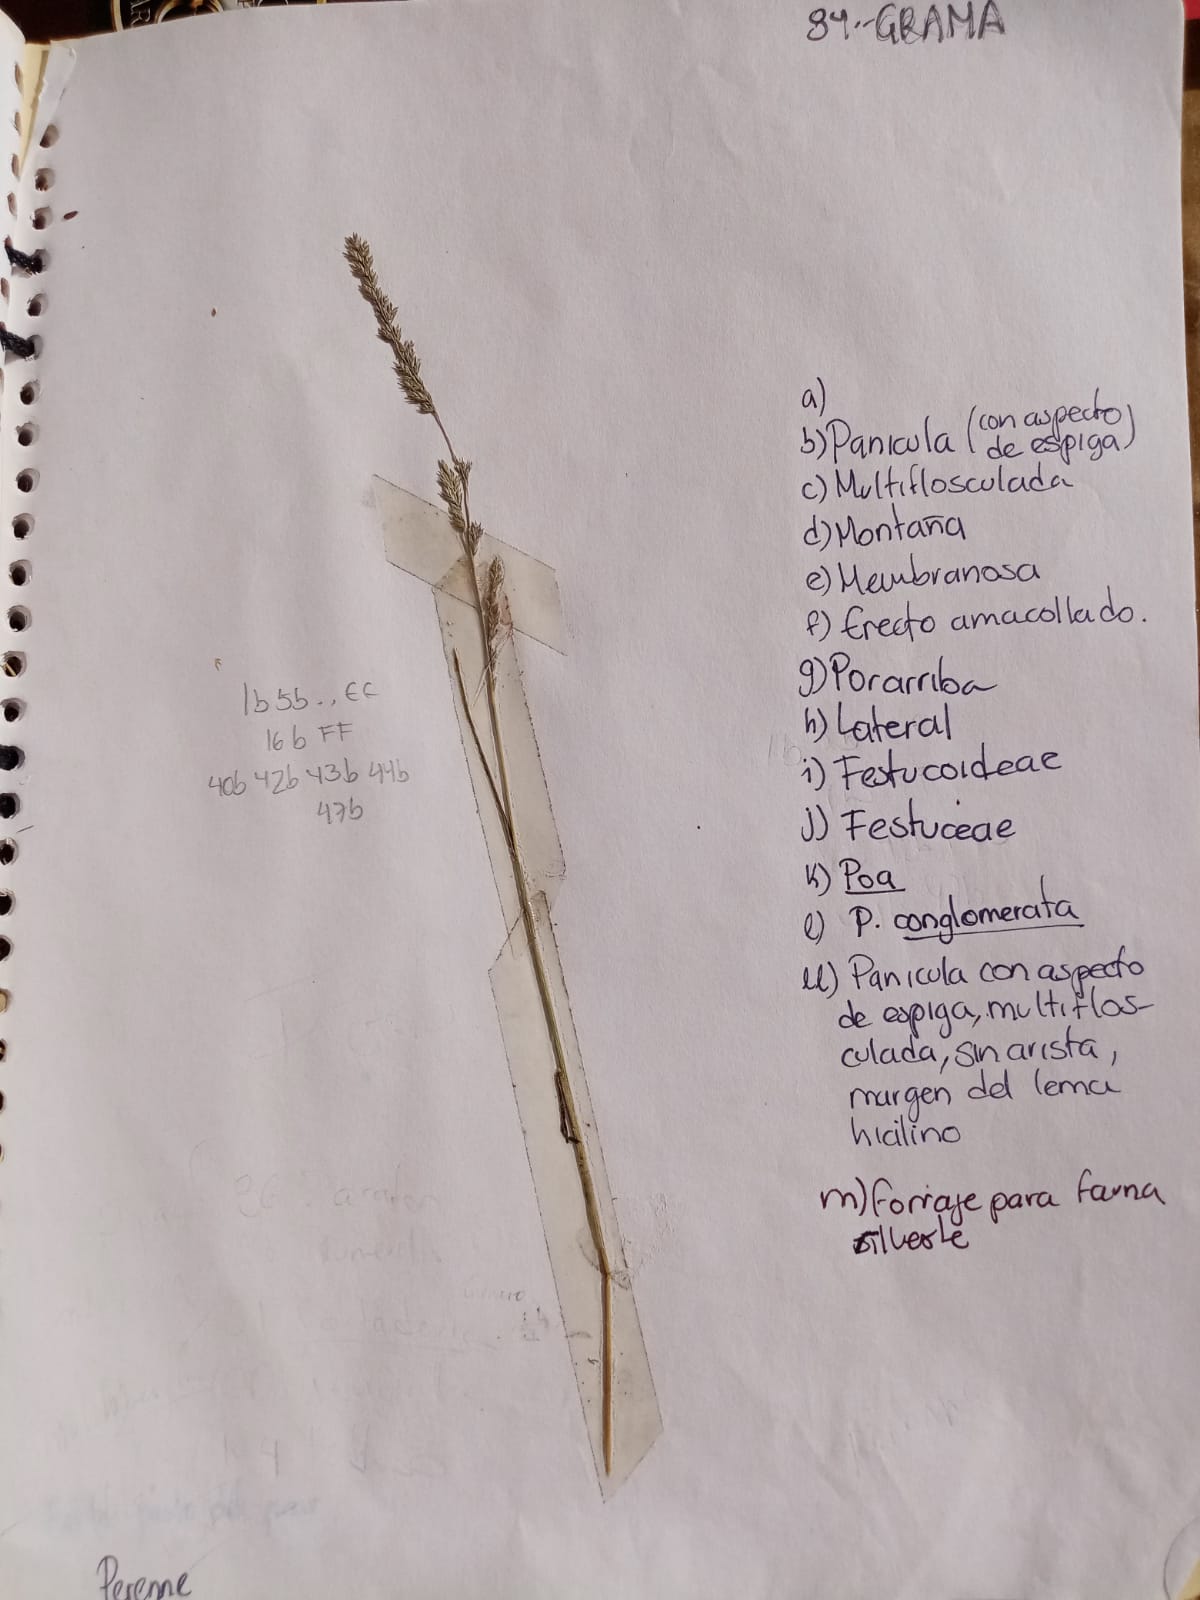 84.-GRAMA
a)
b) Panicula (con aspecto
de espiga)
c) Multiflosculada
d) Montaña
e) Membranosa
f) Erecto amacollado.
g) Por arriba
h) Lateral
i) Festucoideae
j) Festuceae
k) Poa
l) P. conglomerata
ll) Panicula con aspecto
de espiga, multiflos-
culada, sin arista,
margen del lema
hialino
m) Forraje para fauna
silvestre
1b 5b .. EE
16b FF
40b 42b 43b 44b
47b
Perenne